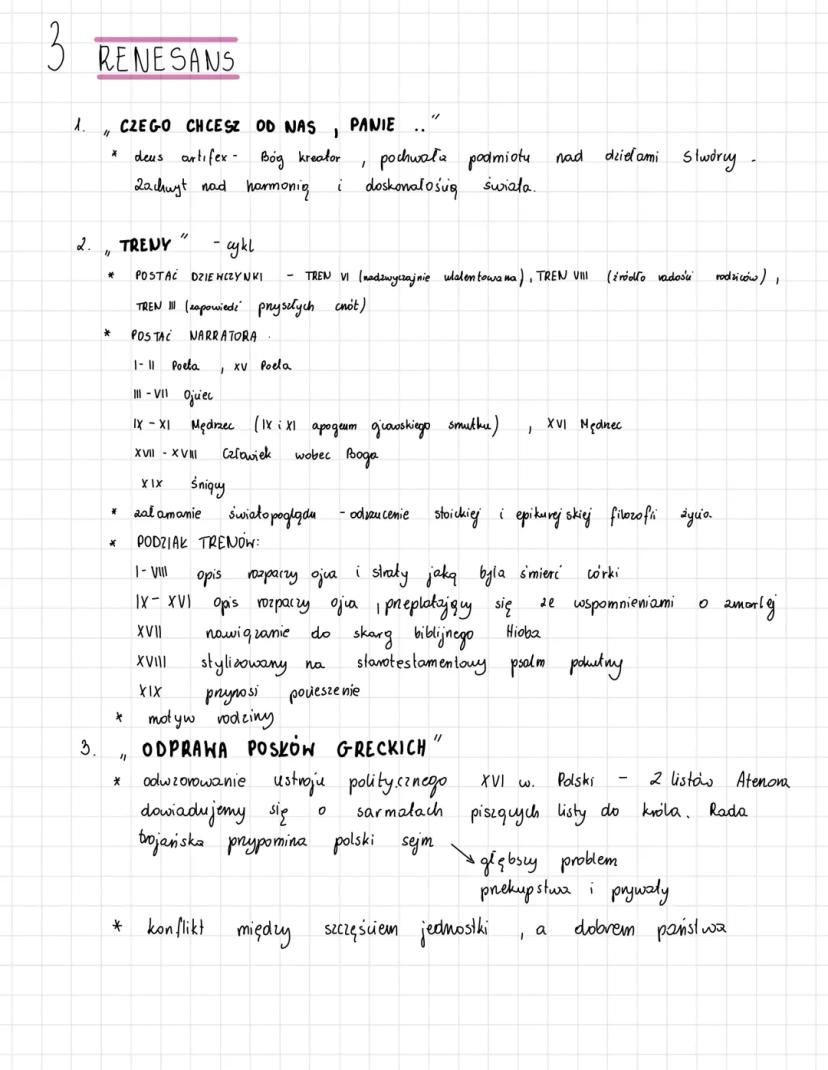 3 RENESANS
1. „ CZEGO CHCESZ OD NAS , PANIE .. "
* deus artifex - Bóg kreator , pochwała podmiotu nad dziełami Stwórcy .
Zachwyt nad harmonią i doskonałością świata.
2. „ TRENY " - cykl
* POSTAĆ DZIEWCZYNKI - TREN VI (nadzwyczajnie utalentowana), TREN VIII (źródło radości rodziców) ,
TREN III (zapowiedź przyszłych cnót)
* POSTAĆ NARRATORA .
I - II Poeta , XV Poeta
III - VII Ojciec
IX - XI Mędrzec (IX i XI apogeum ojcowskiego smutku) , XVI Mędrzec
XVII - XVIII Człowiek wobec Boga
XIX śniący
* załamanie światopoglądu - odrzucenie stoickiej i epikurejskiej filozofii życia.
* PODZIAŁ TRENÓW:
I - VIII opis rozpaczy ojca i straty jaką była śmierć córki
IX - XVI opis rozpaczy ojca , przeplatający się ze wspomnieniami o zmarłej
XVII nawiązanie do skarg biblijnego Hioba
XVIII stylizowany na starotestamentowy psalm pokutny
XIX przynosi pocieszenie
* motyw rodziny
3. „ ODPRAWA POSŁÓW GRECKICH "
* odwzorowanie ustroju politycznego XVI w. Polski - z listów Atenora
dowiadujemy się o sarmatach piszących listy do króla. Rada
trojańska przypomina polski sejm
głębszy problem
przekupstwa i prywaty
* konflikt między szczęściem jednostki , a dobrem państwa